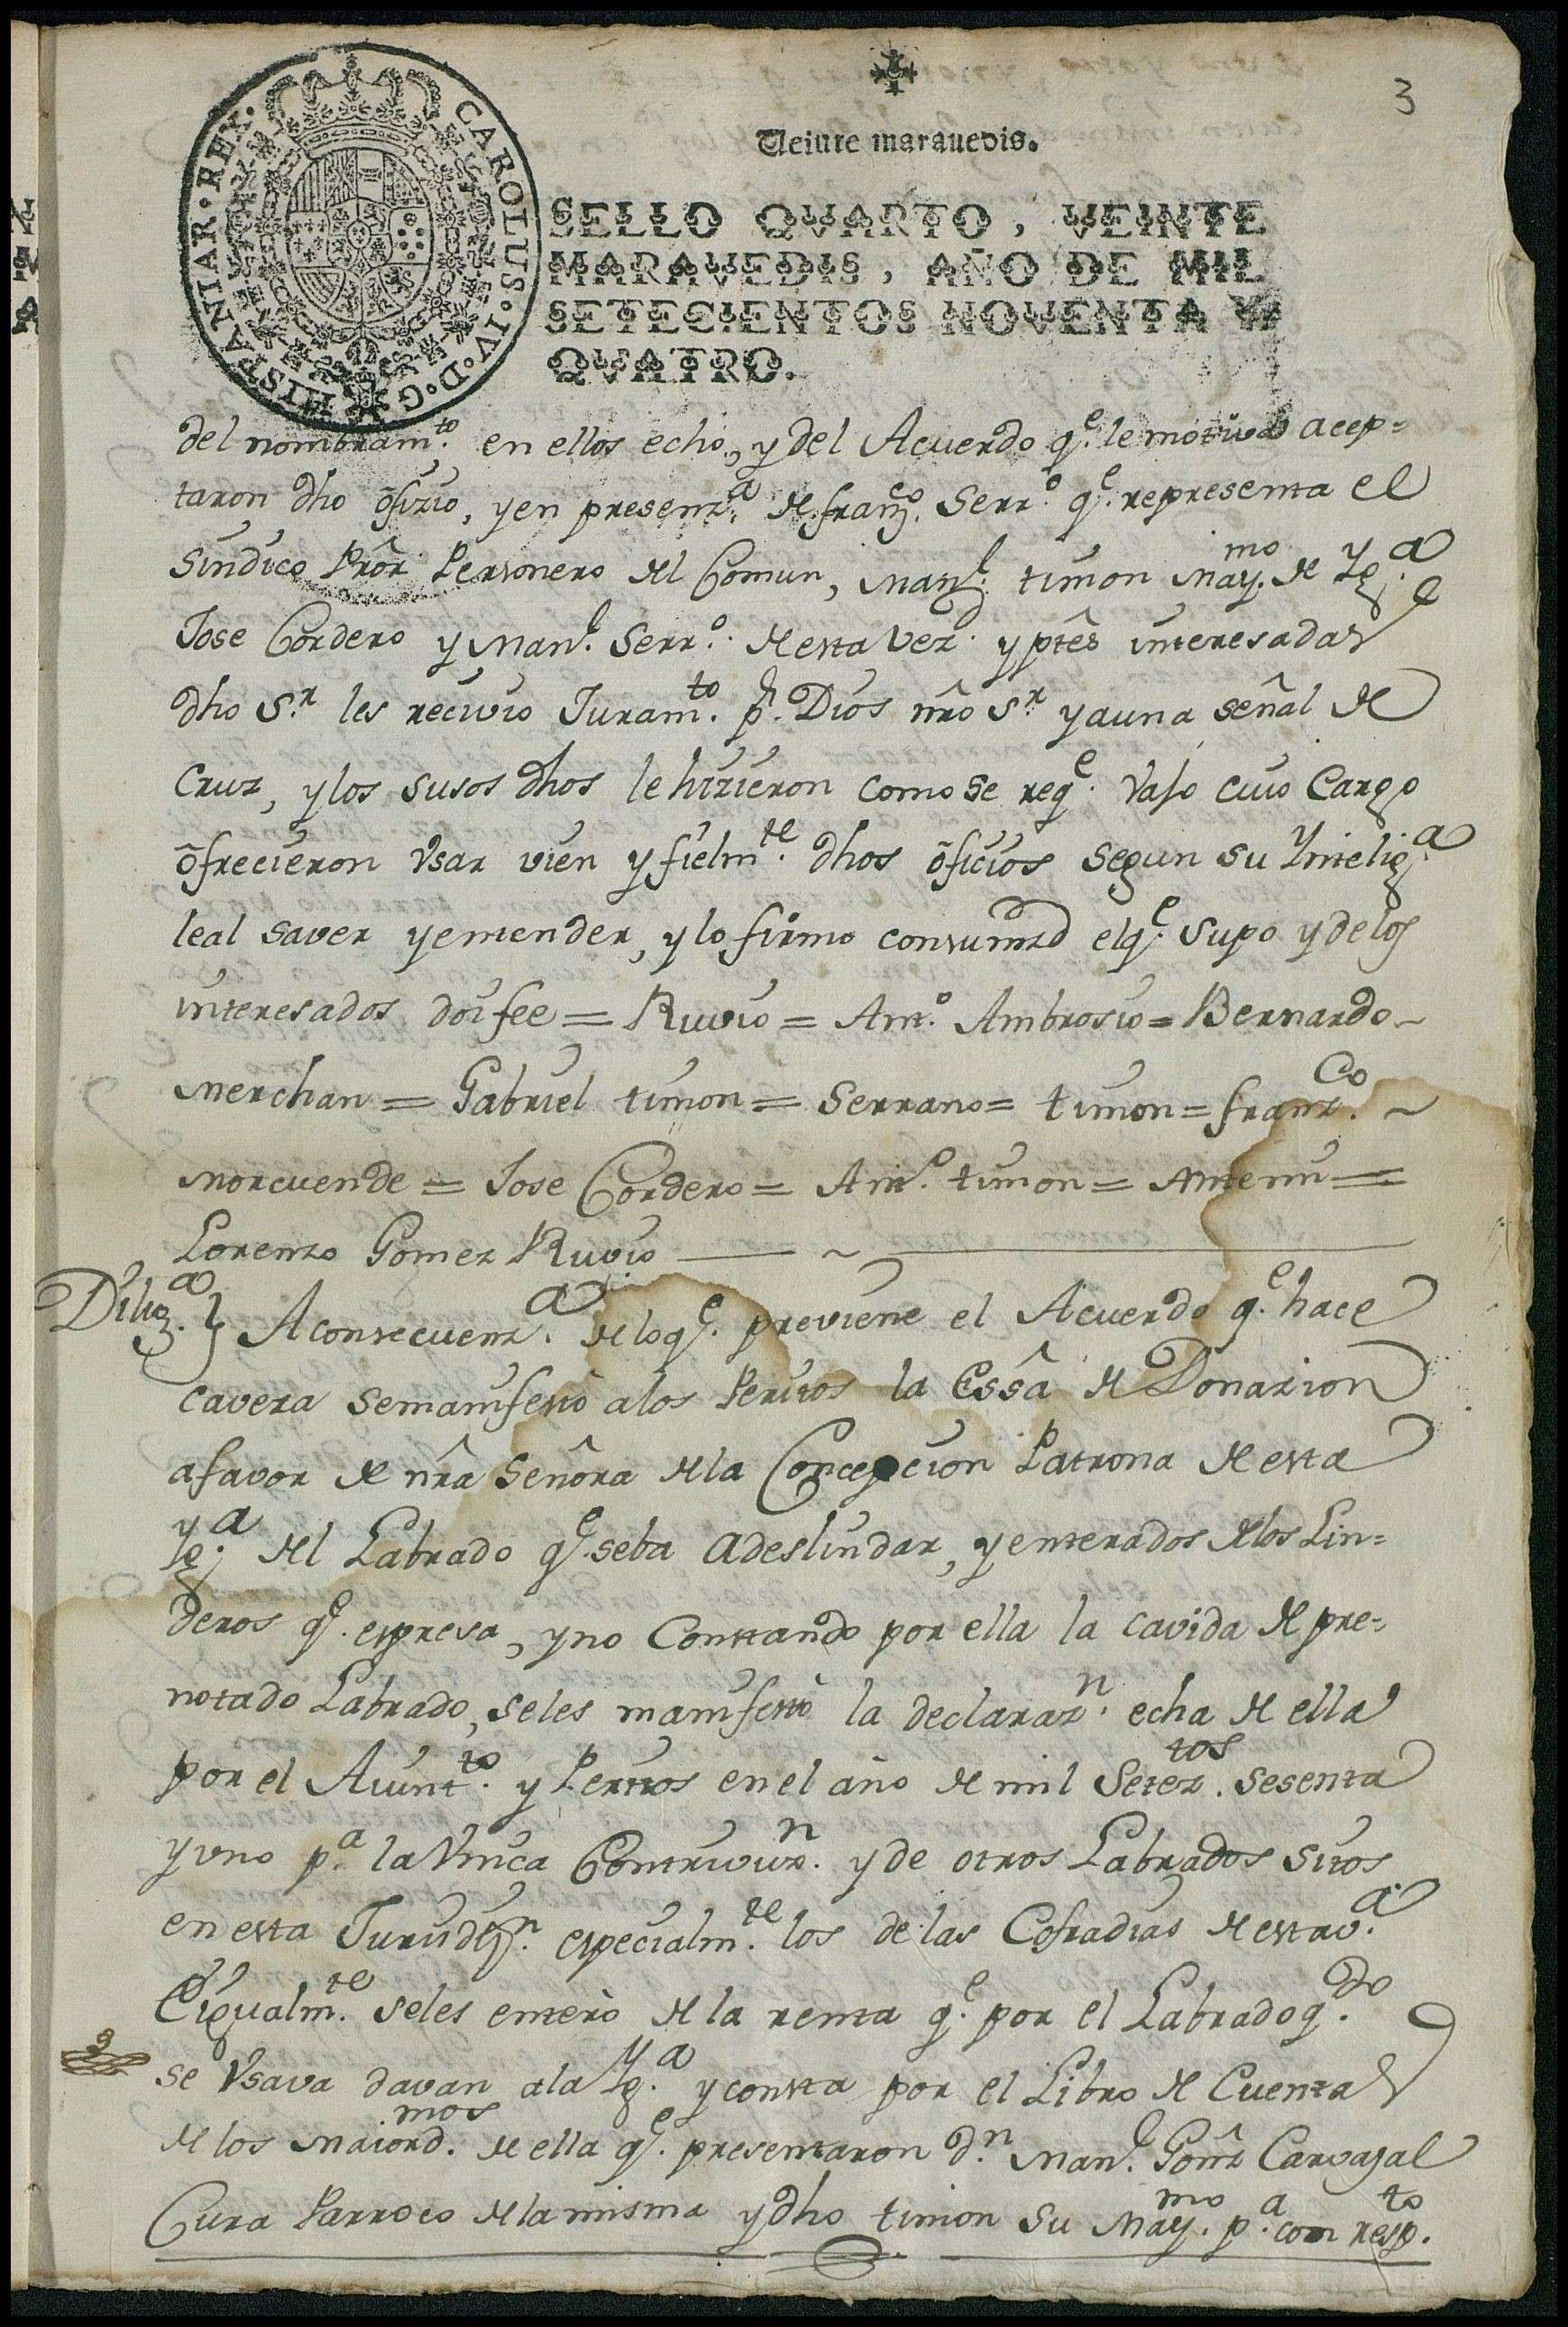 3
Veinte maravedis.
CAROLUS·IV·D·G·HISPANIAR·REX·
SELLO QVARTO, VEINTE
MARAVEDIS, AÑO DE MIL
SETECIENTOS NOVENTA Y
QVATRO.
del nombram.to en ellos echo, y del Acuerdo q.e le motiva acep=
taron dho ofizio, y en presenz.a de franz.co Serr.o q.e representa el
Sindico Prôr Personero del Comun, Man.l timon May.mo de Yg.a
Jose Cordero y Man.l Serr.o de esta Vez.d y ptês interesadas
dho S.r les recivio Juram.to p.r Dios nrô S.r y a una señal de
Cruz, y los susos dhos le hizieron como se req.e vajo cuio Cargo
ofrecieron Vsar vien y fielm.te dhos oficios segun su Yntelig.a
leal saver y entender, y lo firmo con su mrd el q.e supo y de los
interesados doi fee = Ruvio = Ant.o Ambrosio = Bernardo ~
Merchan = Gabriel timon = Serrano = timon = franz.co ~
Morcuende = Jose Cordero = Ant.o timon = Antemi =
Lorenzo Gomez Ruvio ~
Dilig.a } A consecuenz.a de lo q.e previene el Acuerdo q.e hace
cavera se manifestó a los Peritos la Essâ de Donazion
a favor de nrâ Señora de la Concepcion Patrona de esta
Yg.a del Labrado q.e se ba a deslindar, y enterados de los Lin=
deros q.e espresa, y no Constando por ella la cavida de pre=
notado Labrado, se les manifestó la declaraz.n echa de ella
por el Aiunt.to y Peritos en el año de mil Setez.tos sesenta
y uno p.a la Vnica Contrivuz.n y de otros Labrados sitos
en esta Jurisdiz.n especialm.te los de las Cofradias de esta v.a
E igualm.te se les enteró de la renta q.e por el Labrado q.do
se Vsava davan a la Yg.a y consta por el Libro de Cuentas
de los Maiord.mos de ella q.e presentaron d.n Man.l Gomz Carvajal
Cura Parroco de la misma y dho timon su May.mo p.a con resp.to